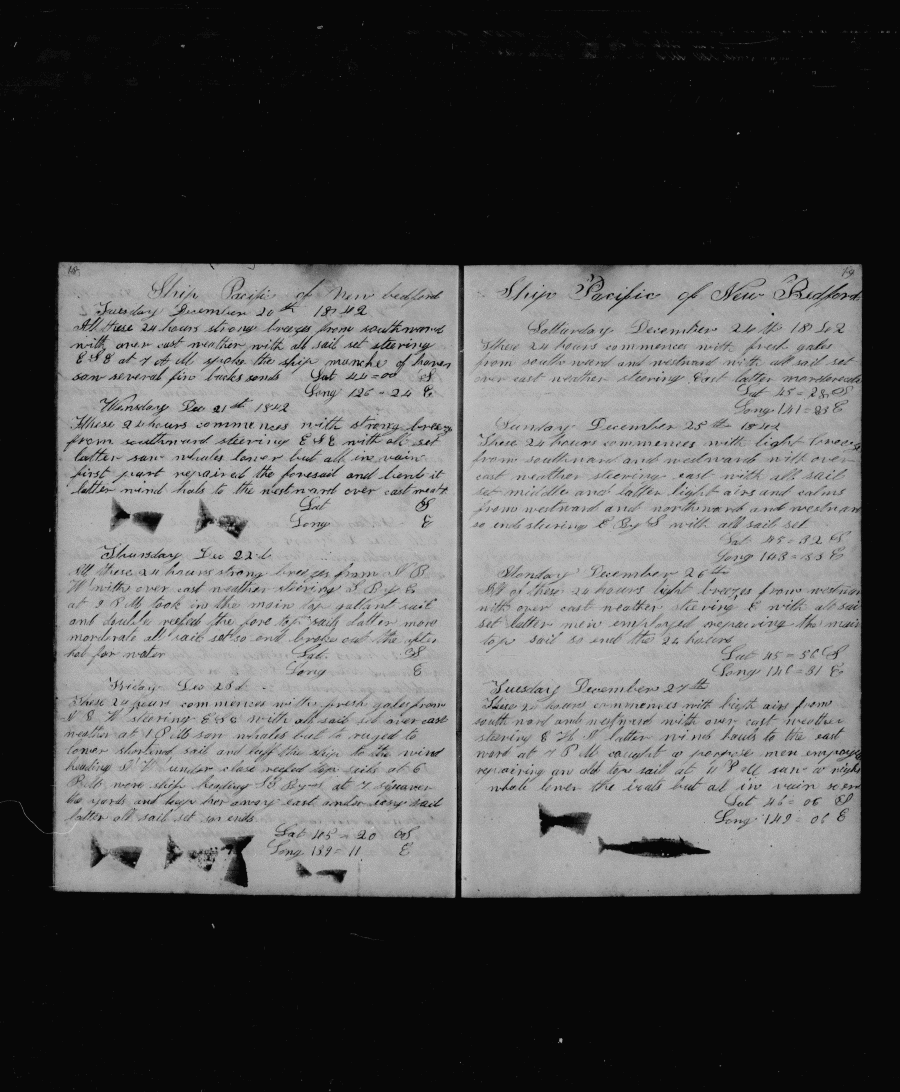 18
Ship Pacific of New bedford
Tuesday December 20th 1842
All these 24 hours strong breezes from southward
with over cast weather with all sail set steering
E S E at 7 A M spoke the ship manche of haver
saw several fin backs sonds Lat 44=00 S
Long 126=24 E
Wensday Dec 21st 1842
these 24 hours commences with strong breezes
from southward steering E S E with all set
latter saw whales lower but all in vain
first part repaired the foresail and bent it
latter wind hals to the westward over cast weat
Lat S
Long E
Thursday Dec 22d
All these 24 hours strong breezes from S B
W with over cast weather steering S B y E
at 9 P M took in the main top gallant sail
and double reefed the fore top sail latter more
morderate all sail set so end broke out the after
hol for water Lat S
Long E
Friday Dec 23d
These 24 hours commences with fresh gales from
S S W steering E S E with all sail set over cast
weather at 1 P M saw whales but to ruged to
lower shortend sail and luff the ship to the wind
heading under close reefed top sails at 6
P M wore ship heading S E By at 7 squared
the yards and kept her away east under easy sail
latter all sail set so ends
Lat 45=20 S
Long 139=11 E
19
Ship Pacific of New Bedford
Satturday December 24th 1842
These 24 hours commences with fresh gales
from southward and westward with all sail set
over cast weather steering East latter morderate
Lat 45=28 S
Long 141=23 E
Sunday December 25th 1842
These 24 hours commences with light breezes
from southward and westward with over
cast weather steering east with all sail
set middle and latter light airs and calms
from westward and northward and westward
so ends steering E By S with all sail set
Lat 45=32 S
Long 143=53 E
Monday December 26th
All of these 24 hours light breezes from westwar
with over cast weather steering E with all sail
set latter men employed repairing the main
top sail so end the 24 hours
Lat 45=56 S
Long 146=31 E
Tuesday December 27th
These 24 hours commences with ligh airs from
south ward and westward with over cast weather
steering latter wind hauls to the east
ward at 7 P M caught a porpose men employed
repairing an old top sail at 4 P M saw a right
whale lower the boats but al in vain
Lat 46=06 S
Long 149=06 E